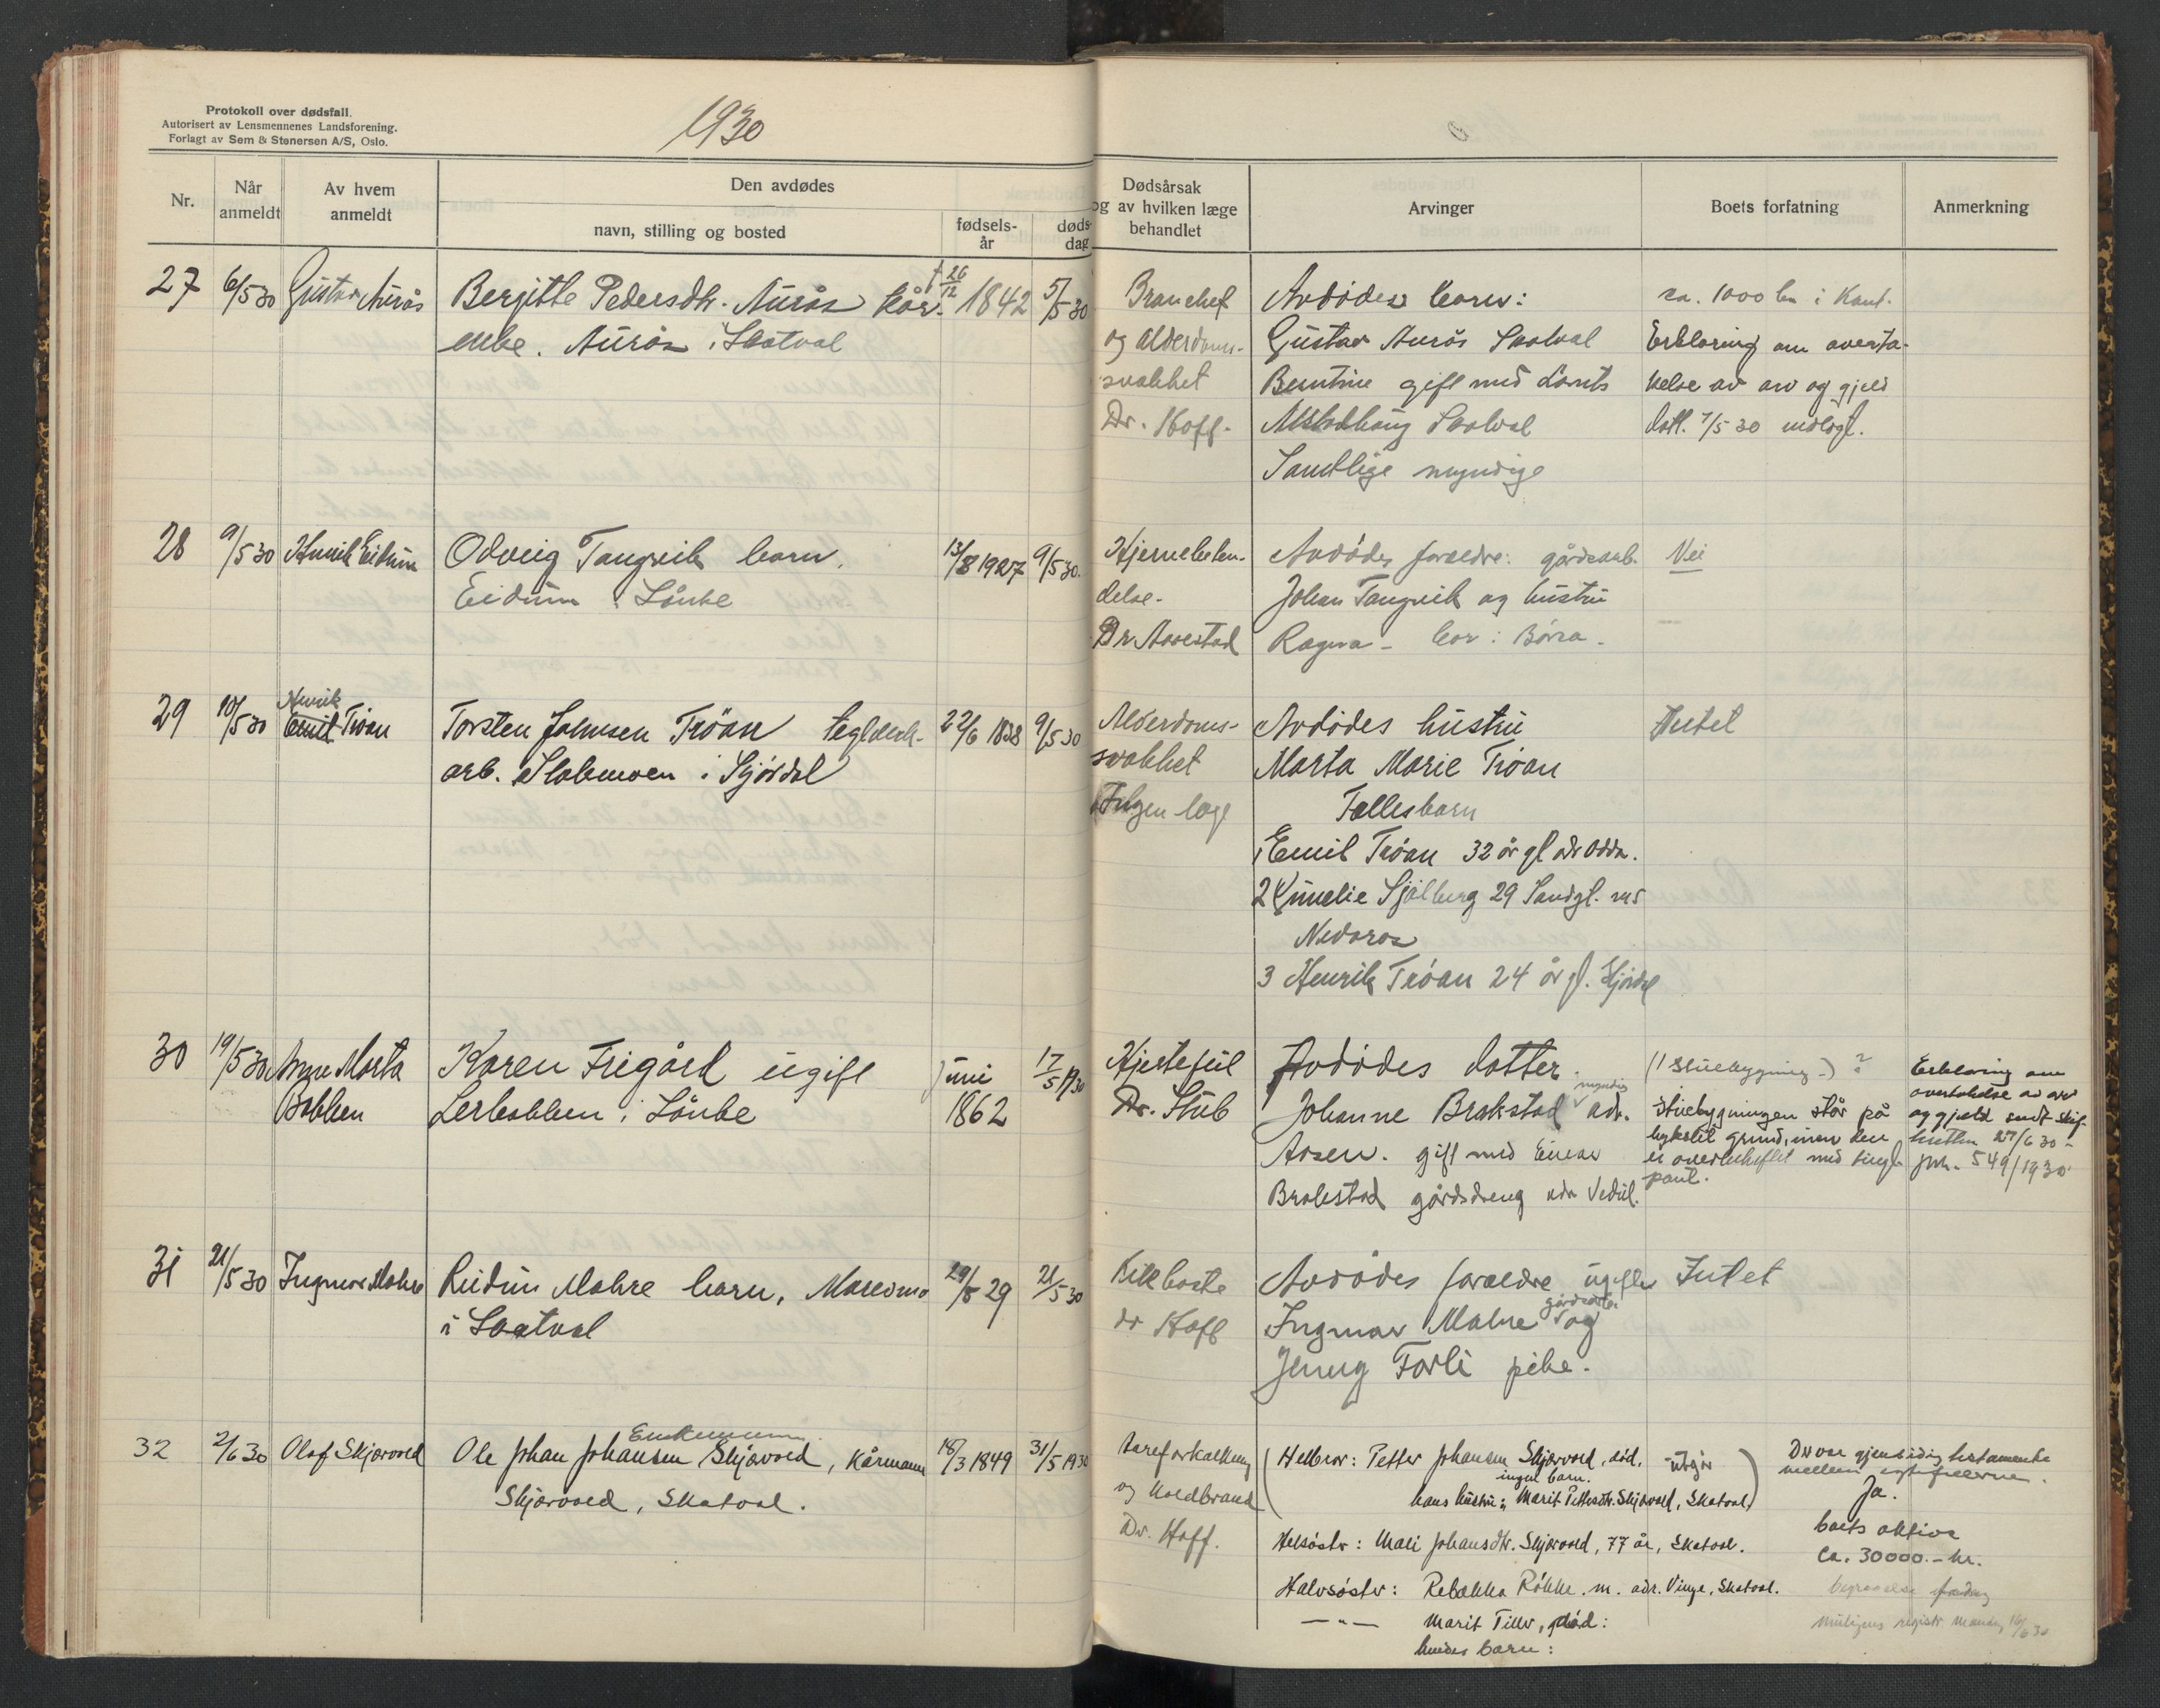 Protokoll over dødsfall.
Autorisert av Lensmennenes Landsforening.
Forlagt av Sem & Stenersen A/S, Oslo.
1930
Nr.
Når anmeldt
Av hvem anmeldt
Den avdødes
navn, stilling og bosted
fødsels-år
døds-dag
Dødsårsak og av hvilken læge behandlet
Arvinger
Boets forfatning
Anmerkning
27 6/5 30 Gustav Aurås
Bergitte Pedersdtr. Aurås kår-
enke. Aurås i Skatval
26/12 1842 5/5 30
og Alderdoms-
svakhet
Dr. Hoff.
Avdødes barn:
Gustav Aurås Skatval
Berntine gift med Lorents
Alstadhaug Skatval
Samtlige myndige
ca. 1000 kr i Kont.
Erklæring om overta-
kelse av arv og gjeld
datt. 7/5 30 indlagt.
28 9/5 30 Henrik Eidum
Odveig Tangvik barn.
Eidum i Lånke
13/8 1927 9/5 30.
Hjernebeten-
delse.
Dr. Aavestad
Avdødes foreldre: gårdsarb.
Johan Tangvik og hustru
Ragna - bor i Børsa.
Nei
29 10/5 30 Henrik
Emil Trøan
Torsten Johnsen Trøan teglverk-
arb. Halsmoen i Stjørdal
22/6 1838 9/5 30
Alderdoms-
svakhet
Ingen læge
Avdødes hustru
Marta Marie Trøan
Fællesbarn
1 Emil Trøan 32 år gl adr Odda.
2 29
Nidaros
3 Henrik Trøan 24 år gl. Stjørdal
Intet
30 19/5 30 Anne Marta
Bakken
Karen Frigård ugift
Leirbakken i Lånke
Juni
1862
17/5 1930
Hjertefeil
Dr. Stub
Avdødes datter.
myndig
Johanne Brakstad adr.
Aasen. gift med Einar
Brakstad gårdsdreng adr Vedul.
(1 Stuebygning.) ?
Stuebygningen står på
bykslet grund, men den
er overbeheftet med tingl.
pant.
Erklæring om
overtakelse av arv
og gjeld sendt skif-
teretten 27/6 30 -
jnr. 549/1930
31 21/5 30 Ingmar Mahre
Reidun Mahre barn, Mæresmo
i Skatval
29/8 29 21/5 30
Kikhoste
dr Hoff
Avdødes foreldre ugifte
gårdsarb.
Ingmar Mahre og
Jenny Forli pike.
Intet
32 2/6 30 Olaf Skjærvold
Enkemann
Ole Johan Johansen Skjærvold, Kårmann
Skjærvold, Skatval.
18/3 1849 31/5 1930
Aareforkalkning
og Koldbrand
Dr. Hoff.
(Helbror: Petter Johansen Skjærvold, död. utgår)
ingen barn.
hans hustru: Marit Pettersdtr. Skjærvold, Skatval)
Helsöster: Mali Johansdtr. Skjærvold, 77 år, Skatval.
Halvsöster: Rebekka Røkke. m. adr. Vinge, Skatval.
— " — Marit Tiller, död:
hendes barn:
Der var gjensidig testamente
mellem egtefellerne.
Ja.
boets aktiva
ca. 30000.- kr.
begravelse fredag
muligens registr mandag 16/6 30